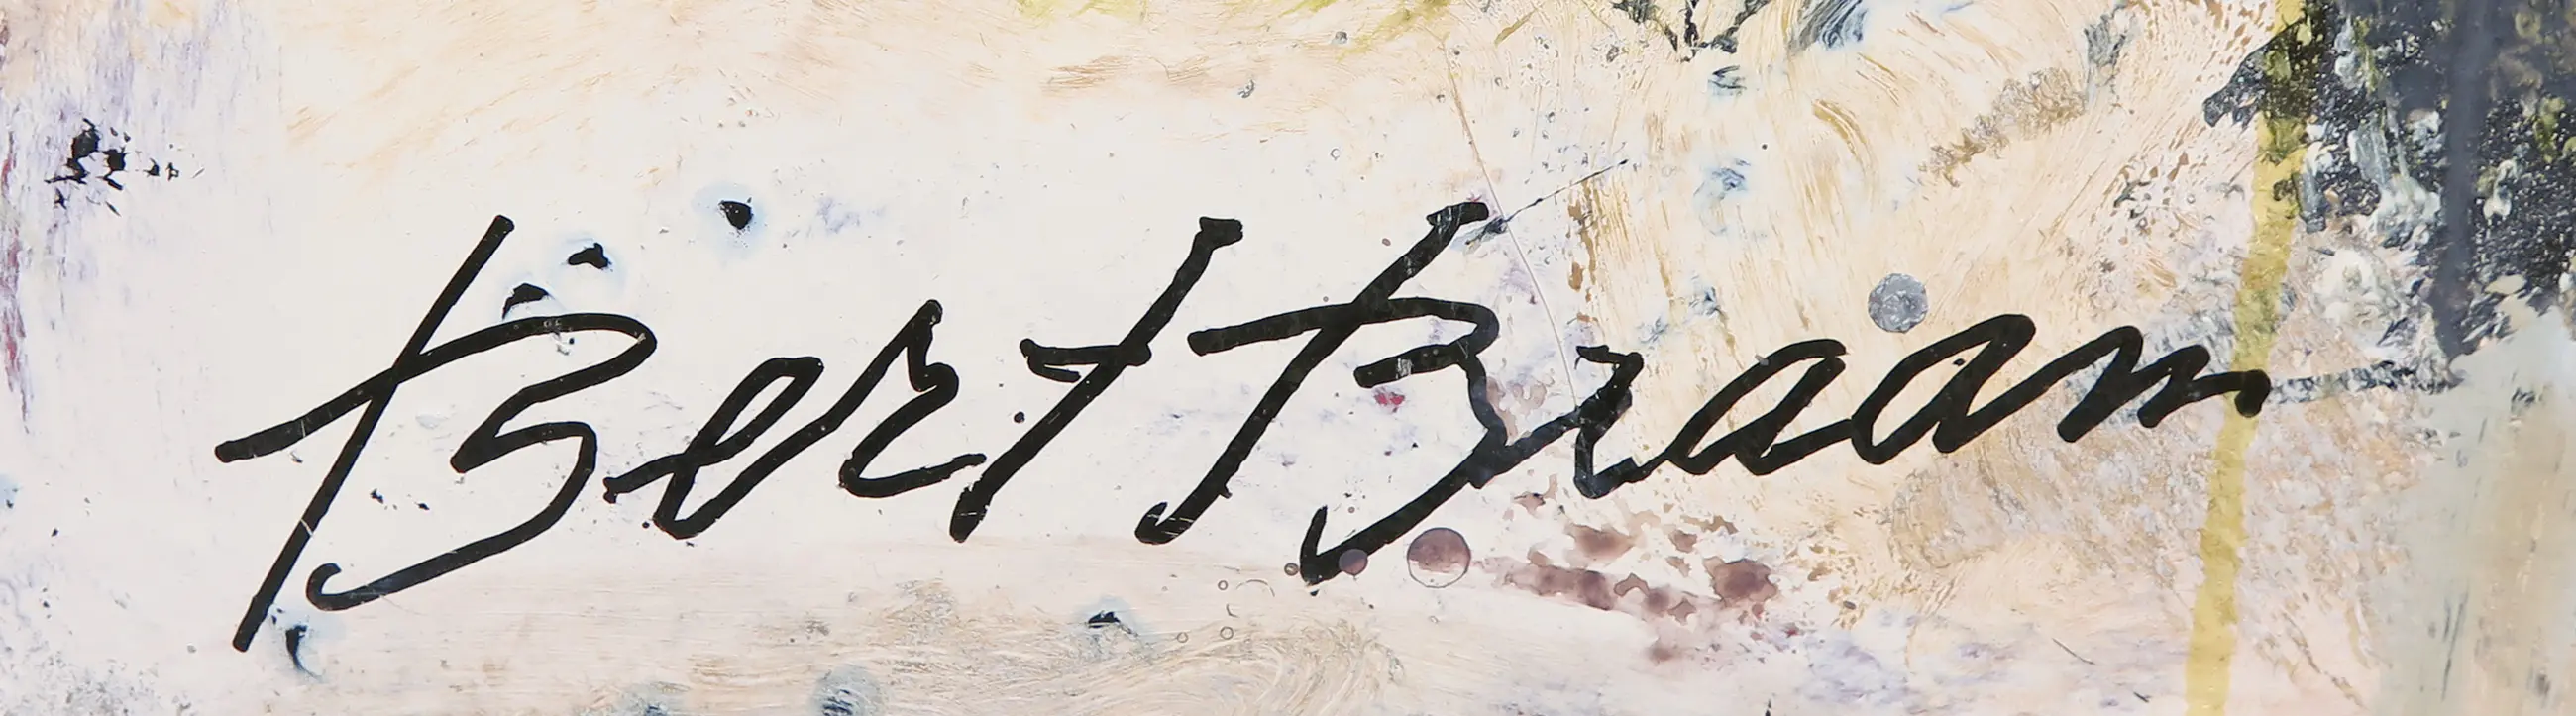 Bert Braam